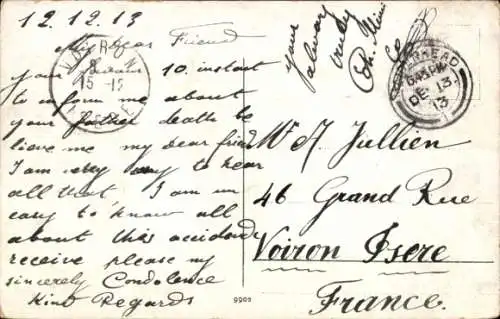 12.12.13
My Dear Friend
your 10. instant
to inform me about
your father death be
lieve me my dear friend
I am very sory to hear
all that. I am un
easy to know all
about this accident
receive please my
sincerely Condolence
Kind Regards
your
always
truly
Mr A Jullien
46 Grand Rue
Voiron Isere
France.
DE 13
13
15-12
9902